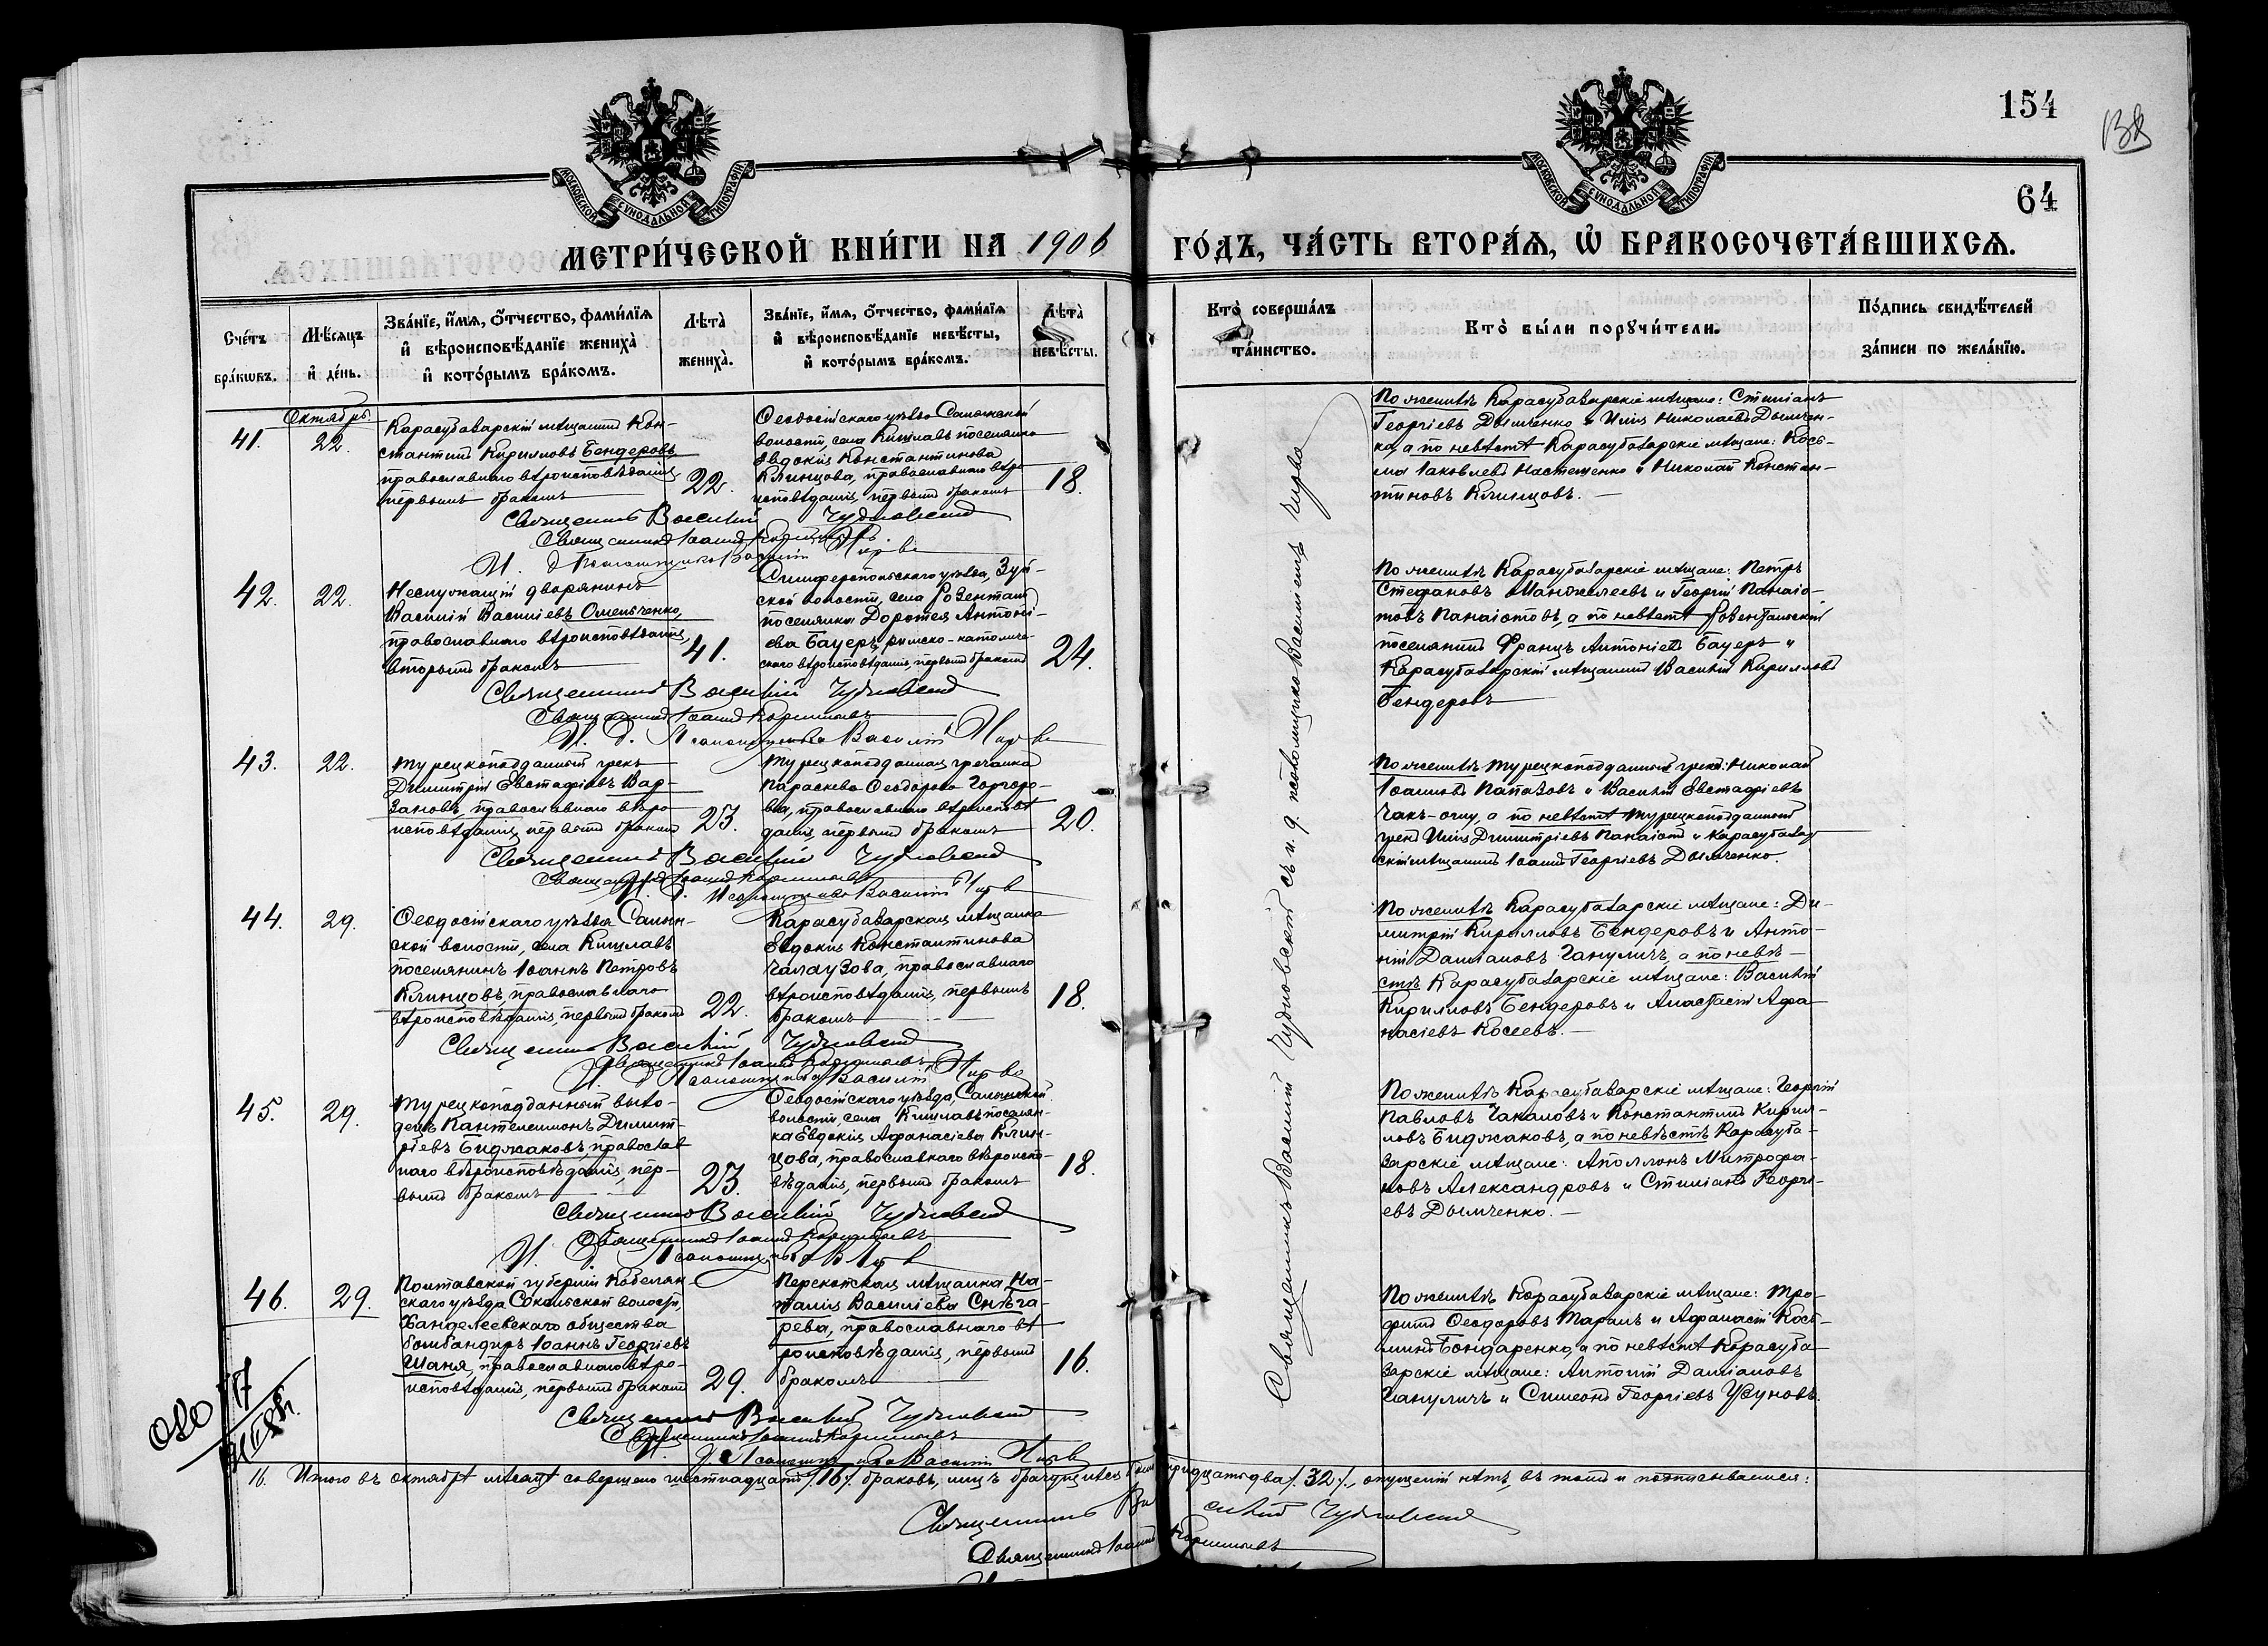 154
138
64
МОСКОВСКОЙ СѴНОДАЛЬНОЙ ТИПОГРАФІИ
МОСКОВСКОЙ СѴНОДАЛЬНОЙ ТИПОГРАФІИ
МЕТРИ́ЧЕСКОЙ КНИ́ГИ НА 1906 ГО́ДЪ, ЧА́СТЬ ВТОРА́Ѧ, Ѡ҆ БРАКОСОЧЕТА́ВШИХСѦ.
Сче́тъ бра́кѡвъ.
Мѣ́сѧцъ и҆ де́нь.
Зва́нїе, и҆́мѧ, ѻ҆́тчество, фами́лїѧ и҆ вѣроисповѣ́данїе жениха̀ и҆ кото́рымъ бра́комъ.
Лѣта̀ жениха̀.
Зва́нїе, и҆́мѧ, ѻ҆́тчество, фами́лїѧ и҆ вѣроисповѣ́данїе невѣ́сты, и҆ кото́рымъ бра́комъ.
Лѣта̀ невѣ́сты.
Кто̀ соверша́лъ та́инство.
Кто̀ бы́ли порꙋчи́тели.
По́дпись свидѣ́телей за́писи по жела́нїю.
Октябрь
41.
22.
Карасубазарскій мѣщанинъ Кон-
стантинъ Кириловъ Бендеровъ
православнаго вѣроисповѣданія,
первымъ бракомъ
22.
Ѳеодосійскаго уѣзда Салынской
волости, села Кишлавъ поселянка
Евдокія Константинова
Клинцова, православнаго вѣро
исповѣданія, первымъ бракомъ
18.
По женихѣ Карасубазарскіе мѣщане: Стиліанъ
Георгіевъ Дымченко и Илія Николаевъ Дымчен-
ко, а по невѣстѣ Карасубазарскіе мѣщане: Кось-
ма Іаковлевъ Настещенко и Николай Констан-
тиновъ Клинцовъ.
Священникъ Василій Чудновскій
Священникъ Іоаннъ
И. д. Псаломщика Василій
42.
22.
Неслужащій дворянинъ
Василій Василіевъ Омельченко,
православнаго вѣроисповѣданія,
вторымъ бракомъ
41.
Симферопольскаго уѣзда, Зуй-
ской волости, села Розенталь
поселянка Доротея Антоні-
ева Бауеръ, римско-католиче-
скаго вѣроисповѣданія, первымъ бракомъ
24.
По женихѣ Карасубазарскіе мѣщане: Петръ
Стефановъ Манжелеевъ и Георгій Панаіо-
товъ Панаіотовъ, а по невѣстѣ Розентальскій
поселянинъ Францъ Антоніевъ Бауеръ и
Карасубазарскій мѣщанинъ Василій Кирилловъ
Бендеровъ
Священникъ Василій Чудновскій
Священникъ Іоаннъ
И. д. Псаломщика Василій
43.
22.
Турецкоподданный грекъ
Димитрій Евстафіевъ Вар-
зановъ, православнаго вѣро
исповѣданія, первымъ бракомъ
23.
Турецкоподданная гречанка
Параскева Ѳеодорова Горгоро-
ва, православнаго вѣроисповѣ
данія, первымъ бракомъ
20.
По женихѣ турецкоподданные греки: Николай
Іоанновъ Папазовъ и Василій Евстафіевъ
Чакъ-оглу, а по невѣстѣ турецкоподданный
грекъ Илія Димитріевъ Панаіотъ и Карасубазар
скій мѣщанинъ Іоаннъ Георгіевъ Дымченко.
Священникъ Василій Чудновскій
Священникъ Іоаннъ
И. д. Псаломщика Василій
44.
29.
Ѳеодосійскаго уѣзда Салын-
ской волости, села Кишлавъ
поселянинъ Іоаннъ Петровъ
Клинцовъ, православнаго
вѣроисповѣданія, первымъ бракомъ
22.
Карасубазарская мѣщанка
Евдокія Константинова
Чалаузова, православнаго
вѣроисповѣданія, первымъ
бракомъ
18.
По женихѣ Карасубазарскіе мѣщане: Ди-
митрій Кирилловъ Бендеровъ и Анто-
ній Даміановъ Чапуличъ, а по невѣ-
стѣ Карасубазарскіе мѣщане: Василій
Кирилловъ Бендеровъ и Анастасій Афа-
насіевъ Косеевъ.
Священникъ Василій Чудновскій
Священникъ Іоаннъ
И. д. Псаломщика Василій
45.
29.
Турецкоподданный выхо-
децъ Пантелеимонъ Димит-
ріевъ Биджаковъ, православ
наго вѣроисповѣданія, пер-
вымъ бракомъ
23.
Ѳеодосійскаго уѣзда, Салынской
волости, села Кишлавъ поселян-
ка Евдокія Афанасіева Клин-
цова, православнаго вѣроиспо-
вѣданія, первымъ бракомъ
18.
По женихѣ Карасубазарскіе мѣщане: Георгій
Павловъ Чакаловъ и Константинъ Кирил-
ловъ Биджаковъ, а по невѣстѣ Карасуба-
зарскіе мѣщане: Аполлонъ Митрофа-
новъ Александровъ и Стиліанъ Георгі-
евъ Дымченко.
Священникъ Василій Чудновскій
Священникъ Іоаннъ
И. д. Псаломщика
46.
29.
Полтавской губерніи Кобеляк-
скаго уѣзда Сокольской волости,
Ханделеевскаго общества
бомбандиръ Іоаннъ Георгіевъ
Шаня, православнаго вѣро-
исповѣданія, первымъ бракомъ
29.
Перекопская мѣщанка На-
талія Василіева Снѣга-
рева, православнаго вѣ
роисповѣданія, первымъ
бракомъ
16.
По женихѣ Карасубазарскіе мѣщане: Тро-
фимъ Ѳеодоровъ Таранъ и Афанасій Кось-
минъ Бондаренко, а по невѣстѣ Карасуба
зарскіе мѣщане: Антоній Даміановъ
Чапуличъ и Симеонъ Георгіевъ Узуновъ.
Священникъ Василій Чудновскій
Священникъ Іоаннъ
И. д. Псаломщика Василій
Священникъ Василій Чудновскій съ и. д. псаломщика Василіемъ
16. Итого въ октябрѣ мѣсяцѣ совершено шестнадцать /16/ браковъ, лицъ брачущихся было тридцать два /32/, опущеній нѣтъ, въ томъ и подписываемся:
Священникъ Василій Чудновскій
Священникъ Іоаннъ